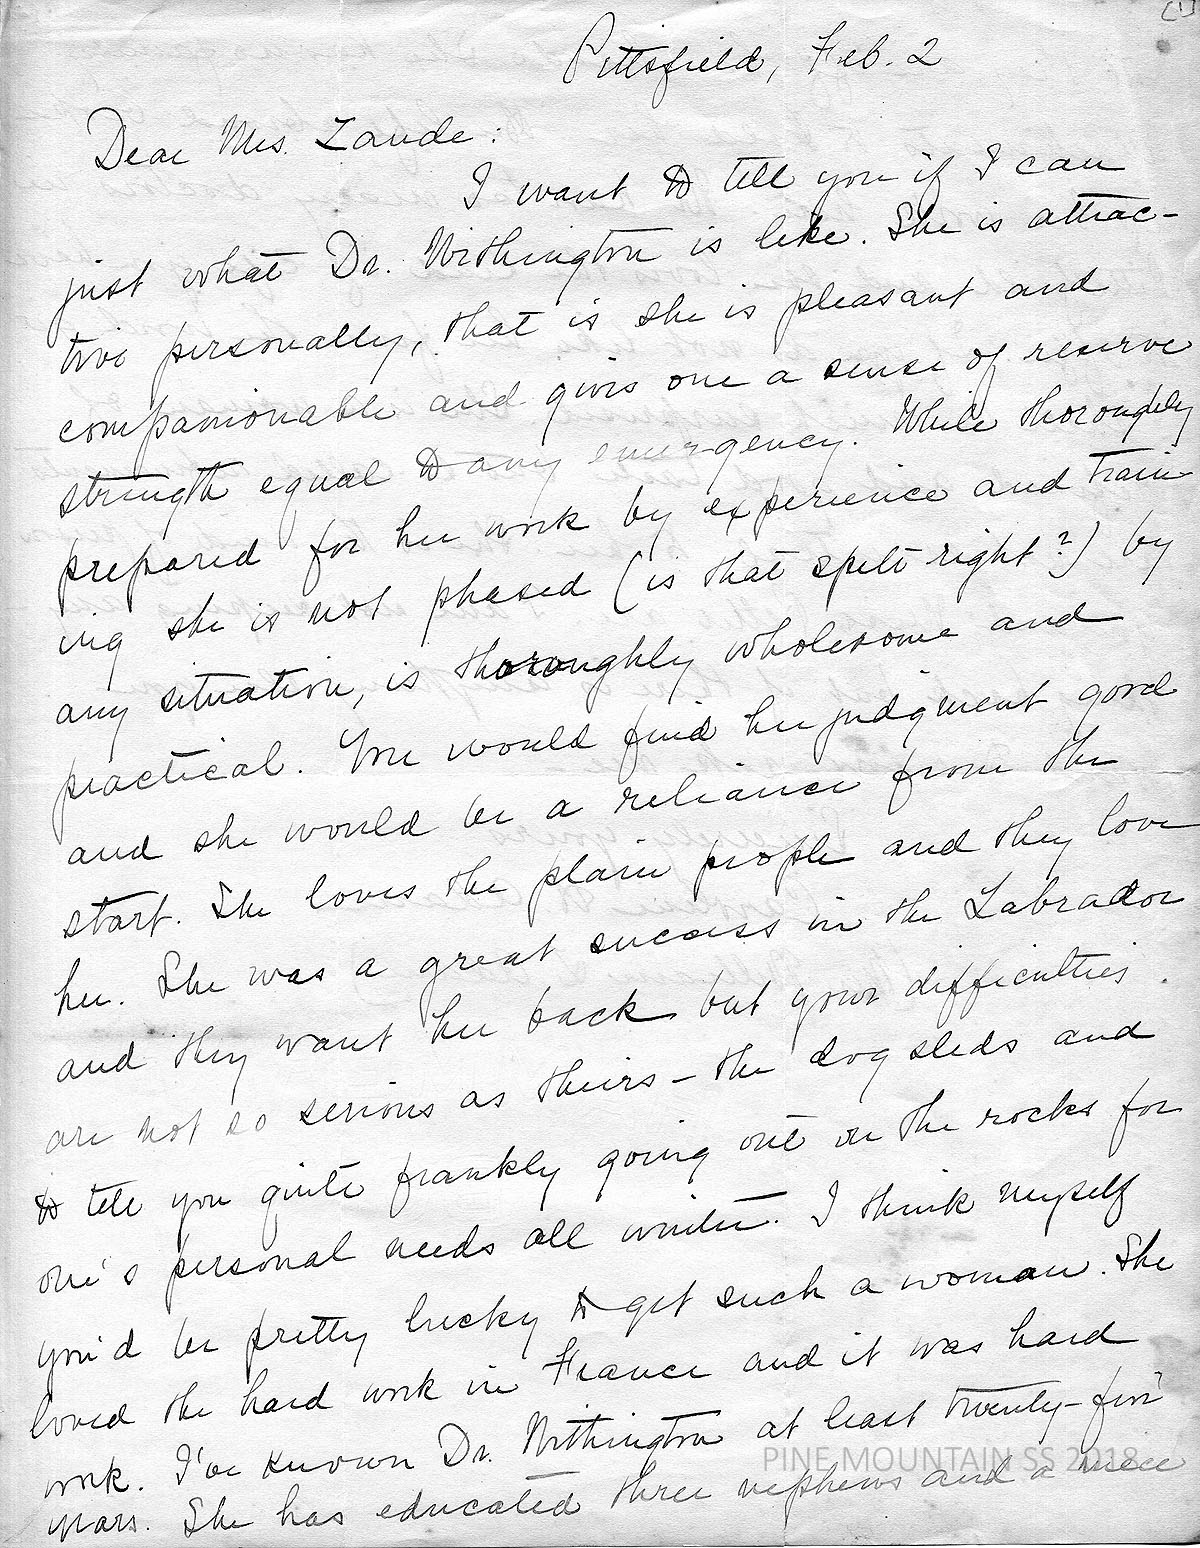 (1)
Pittsfield, Feb. 2
Dear Mrs. Zande:
I want to tell you if I can
just what Dr. Withington is like. She is attrac-
tive personally, that is she is pleasant and
companionable and gives one a sense of reserve
strength equal to any emergency. While thoroughly
prepared for her work by experience and train-
ing she is not phased (is that spelt right?) by
any situation, is thoroughly wholesome and
practical. You would find her judgment good
and she would be a reliance from the
start. She loves the plain people and they love
her. She was a great success in the Labrador
and they want her back but your difficulties
are not so serious as theirs – the dog sleds and
to tell you quite frankly going out on the rocks for
one's personal needs all winter. I think myself
you'd be pretty lucky to get such a woman. She
loved the hard work in France and it was hard
work. I've known Dr. Withington at least twenty-five
years. She has educated three nephews and a niece
PINE MOUNTAIN SS 2018